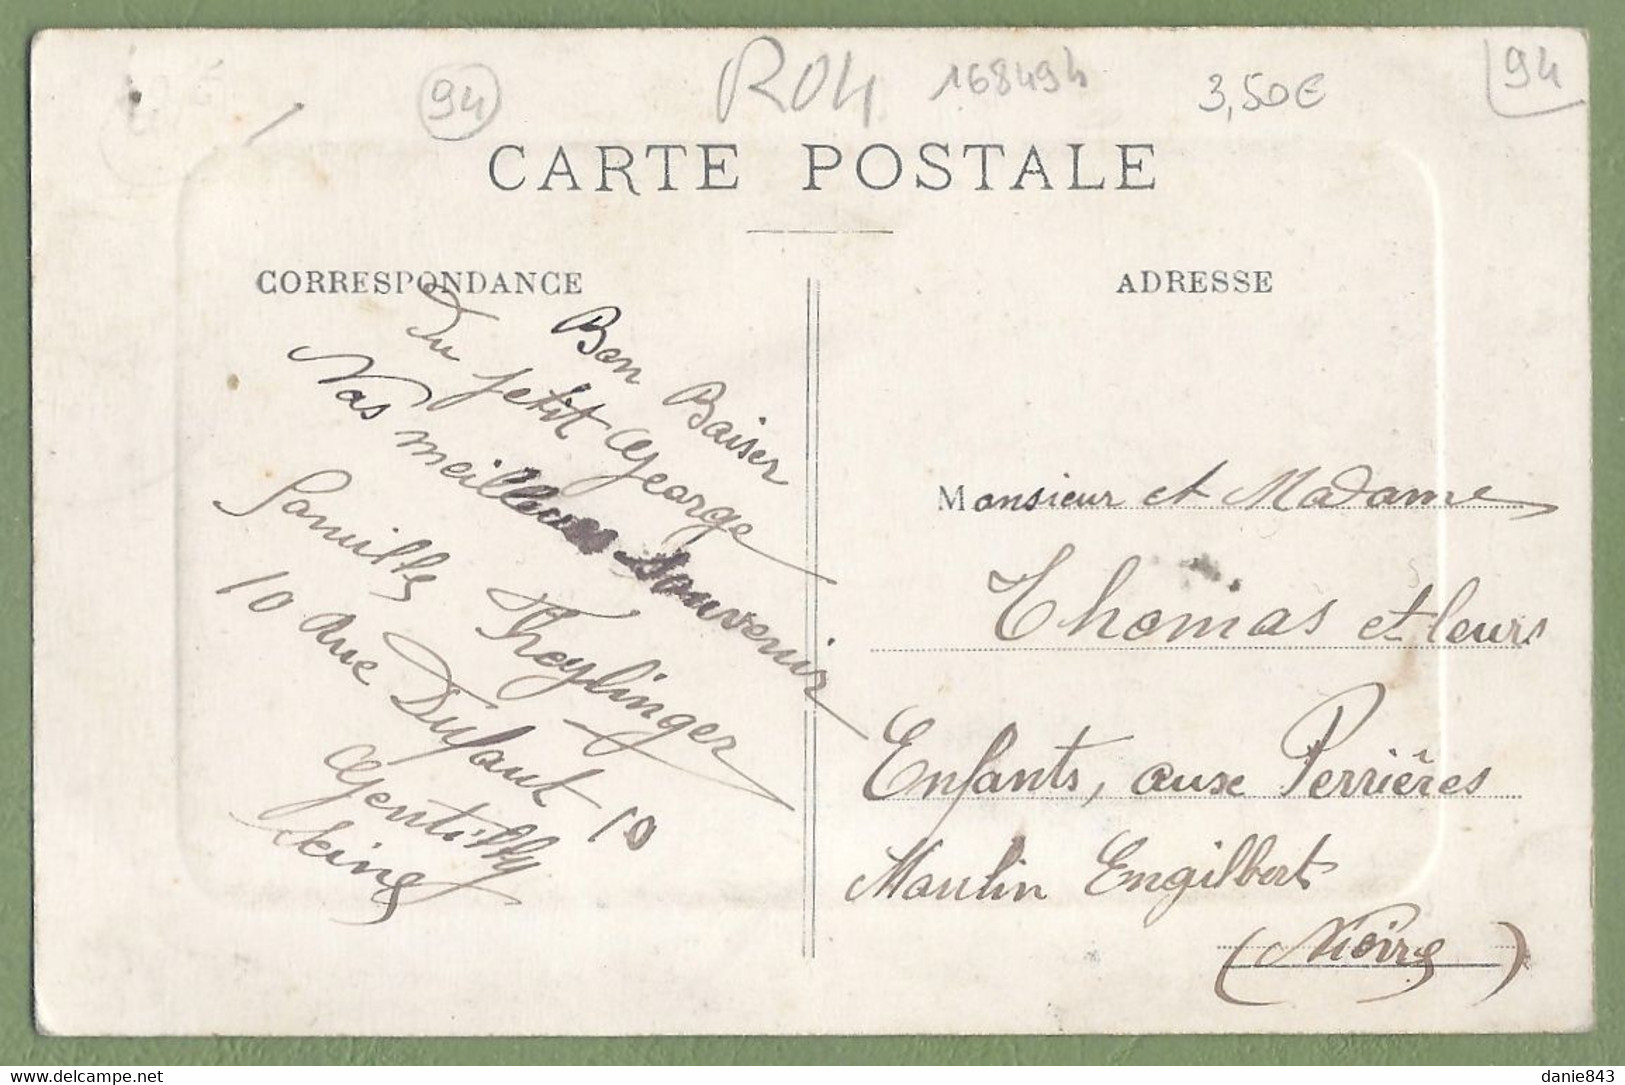 94
R04
168494
3,50€
94
CARTE POSTALE
CORRESPONDANCE
ADRESSE
Bon Baiser
Du petit George
Nos meilleures souvenir
Famille Theylinger
10 Rue Dufaut 10
Gentilly
Seine
Monsieur et Madame
Thomas et leurs
Enfants, aux Perrières
Moulin Engilbert
(Nièvre)
danie843